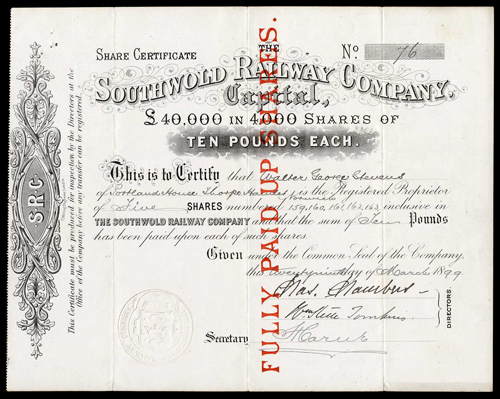 SHARE CERTIFICATE
THE
No 76
SOUTHWOLD RAILWAY COMPANY.
Capital,
£40,000 IN 4,000 SHARES OF
TEN POUNDS EACH.
This is to Certify that Walter George Stevens
of Portland House Thorpe Hamlet Norwich is the Registered Proprietor
of Five SHARES numbered 159, 160, 161, 162, 163 inclusive in
THE SOUTHWOLD RAILWAY COMPANY and that the sum of Ten Pounds
has been paid upon each of such shares.
Given under the Common Seal of the Company,
this day of March 1899
DIRECTORS.
Secretary
FULLY PAID UP SHARES.
S.R.C.
This Certificate must be produced for inspection by the Directory at the
Office of the Company before any transfer can be registered.